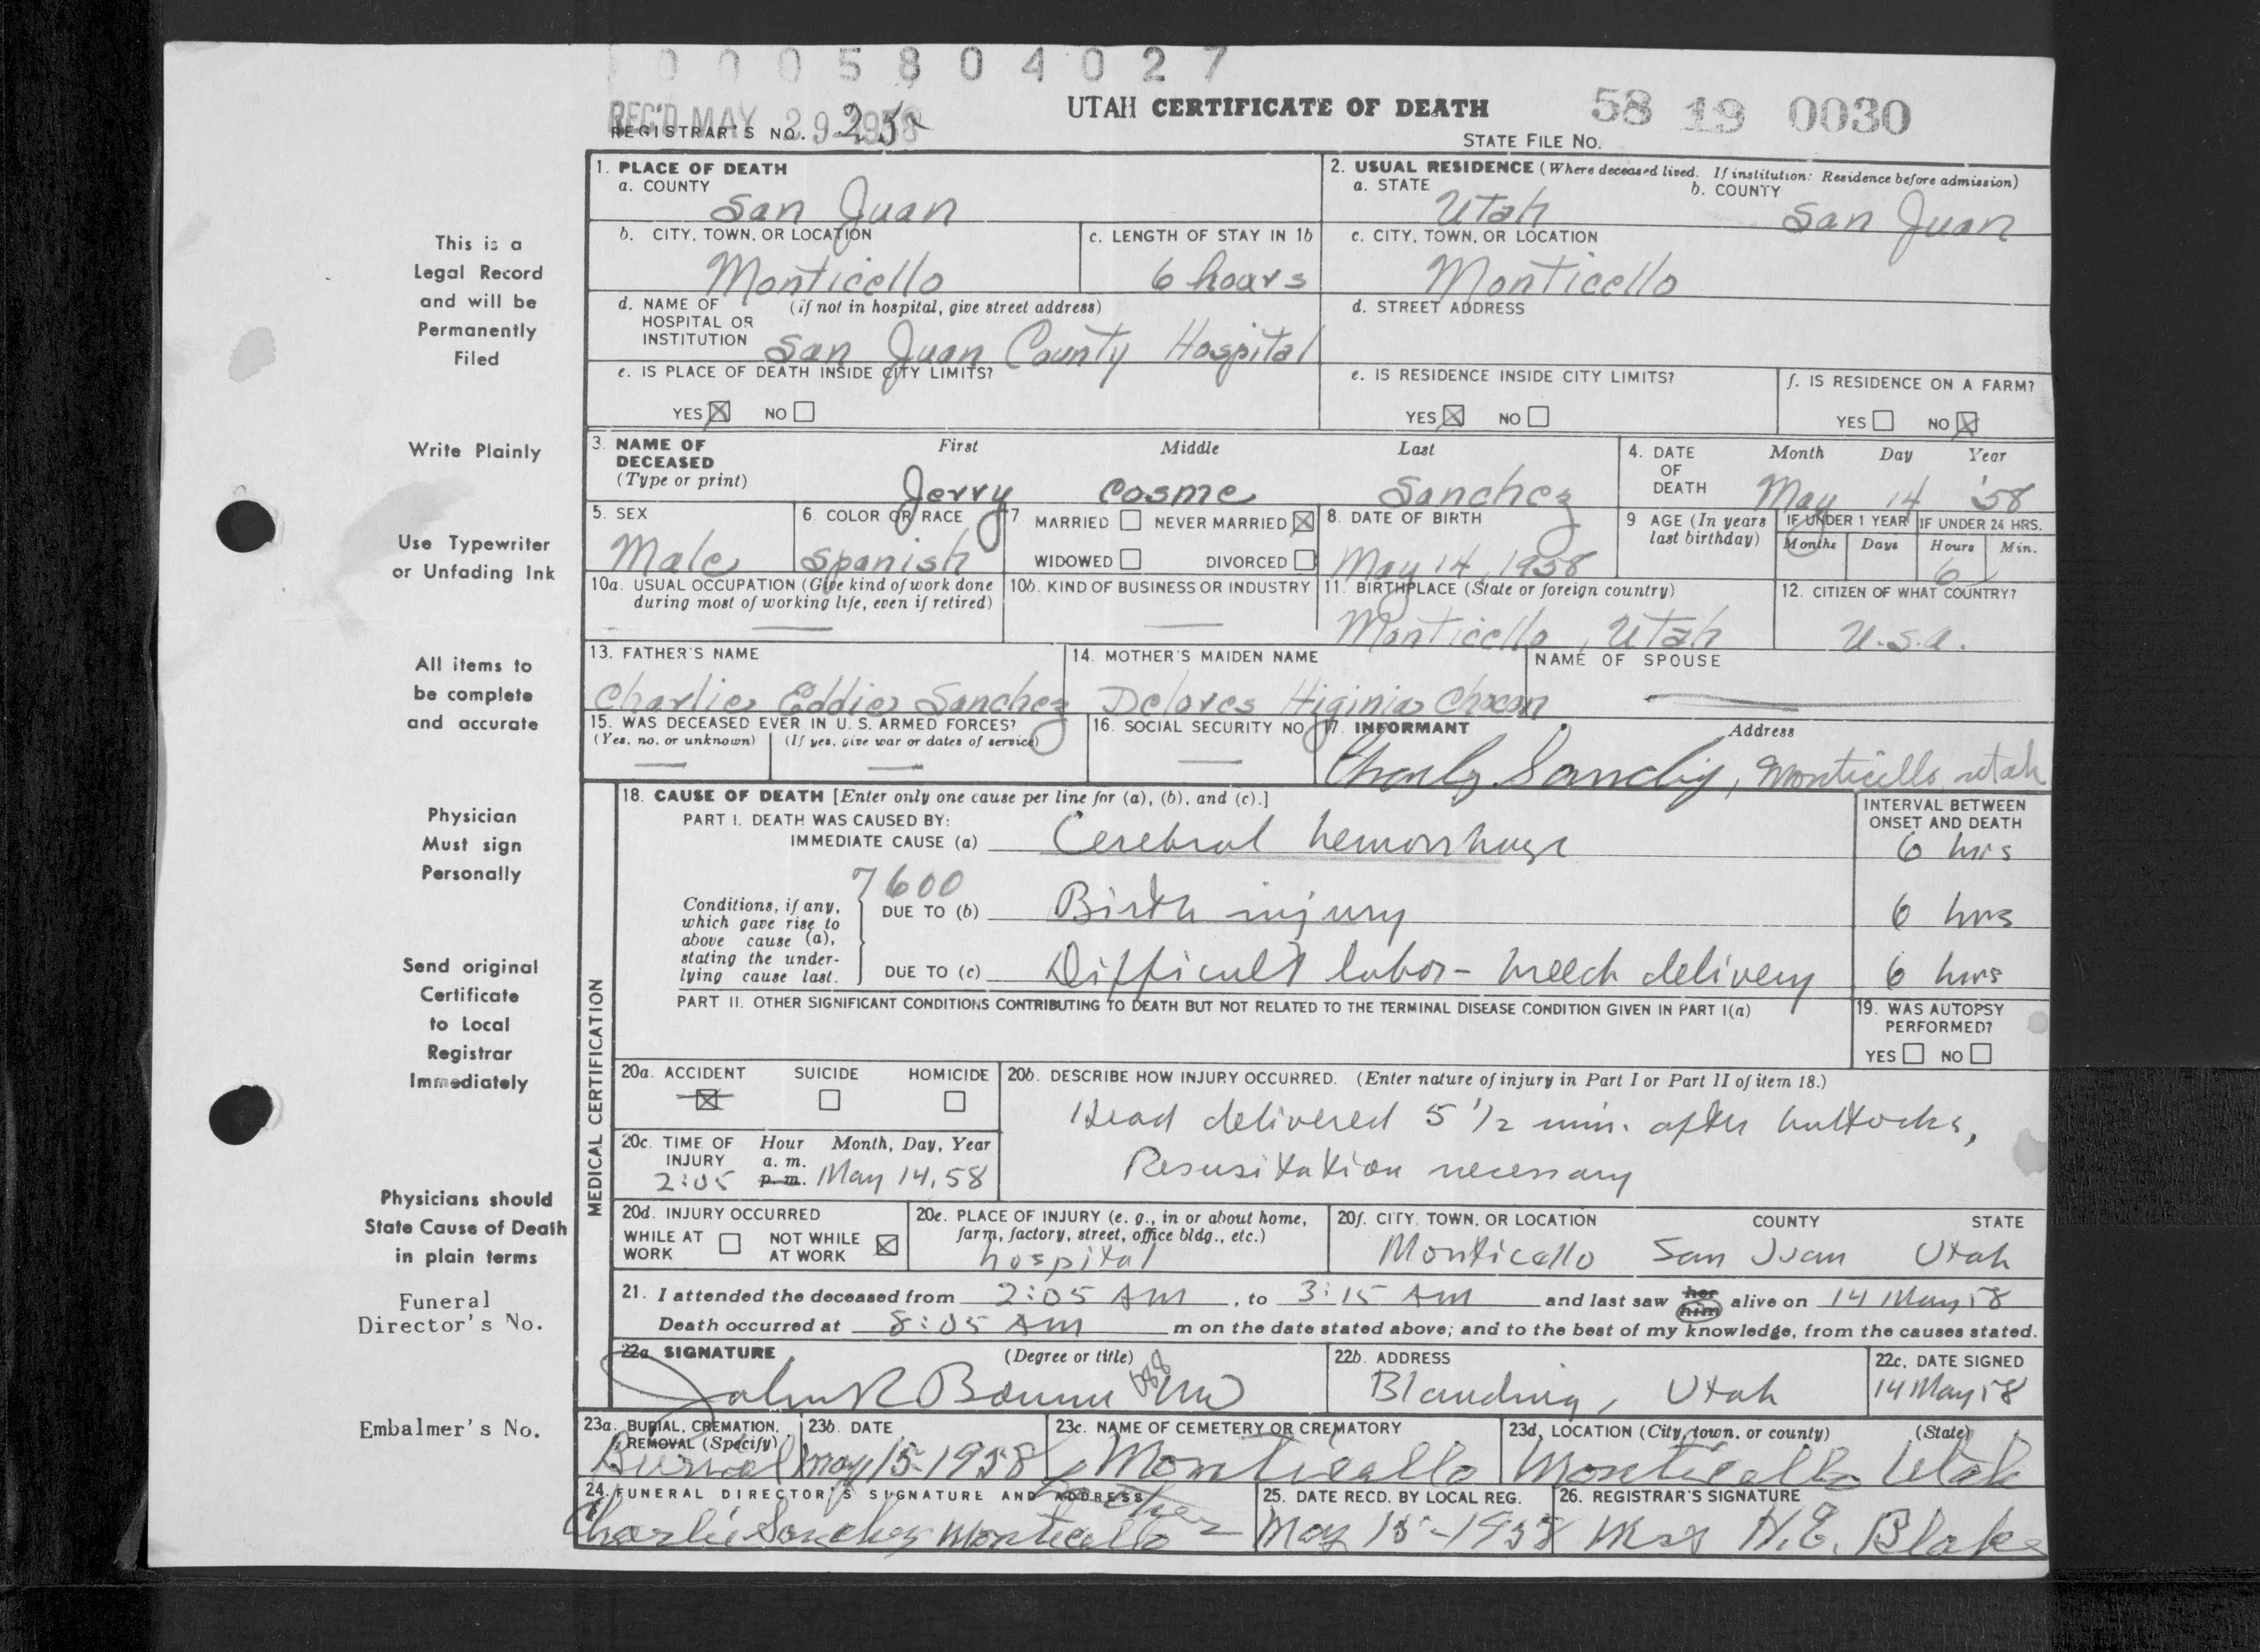 0005804027
REC'D MAY 29 1958
UTAH CERTIFICATE OF DEATH
58 19 0030
REGISTRAR'S NO. 25
STATE FILE NO.
This is a
Legal Record
and will be
Permanently
Filed
Write Plainly
Use Typewriter
or Unfading Ink
All items to
be complete
and accurate
Physician
Must sign
Personally
Send original
Certificate
to Local
Registrar
Immediately
Physicians should
State Cause of Death
in plain terms
Funeral
Director's No.
Embalmer's No.
1. PLACE OF DEATH
a. COUNTY
San Juan
2. USUAL RESIDENCE (Where deceased lived. If institution: Residence before admission)
a. STATE
Utah
b. COUNTY
San Juan
b. CITY, TOWN, OR LOCATION
Monticello
c. LENGTH OF STAY IN 1b
6 hours
c. CITY, TOWN, OR LOCATION
Monticello
d. NAME OF (if not in hospital, give street address)
HOSPITAL OR
INSTITUTION San Juan County Hospital
d. STREET ADDRESS
e. IS PLACE OF DEATH INSIDE CITY LIMITS?
YES ☒ NO ☐
e. IS RESIDENCE INSIDE CITY LIMITS?
YES ☒ NO ☐
f. IS RESIDENCE ON A FARM?
YES ☐ NO ☒
3. NAME OF
DECEASED
(Type or print)
First Middle Last
Jerry Cosme Sanchez
4. DATE
OF
DEATH
Month Day Year
May 14 '58
5. SEX
Male
6. COLOR OR RACE
Spanish
7 MARRIED ☐ NEVER MARRIED ☒
WIDOWED ☐ DIVORCED ☐
8. DATE OF BIRTH
May 14, 1958
9 AGE (In years
last birthday)
IF UNDER 1 YEAR
Months Days
IF UNDER 24 HRS.
Hours Min.
6
10a. USUAL OCCUPATION (Give kind of work done
during most of working life, even if retired)
10b. KIND OF BUSINESS OR INDUSTRY
11. BIRTHPLACE (State or foreign country)
Monticello, Utah
12. CITIZEN OF WHAT COUNTRY?
U.S.A.
13. FATHER'S NAME
Charlie Eddie Sanchez
14. MOTHER'S MAIDEN NAME
Delores Higinia Chacon
NAME OF SPOUSE
15. WAS DECEASED EVER IN U. S. ARMED FORCES?
(Yes, no, or unknown) (If yes, give war or dates of service)
16. SOCIAL SECURITY NO.
17. INFORMANT Address
Charly Sanchez, Monticello Utah
MEDICAL CERTIFICATION
18. CAUSE OF DEATH [Enter only one cause per line for (a), (b), and (c).]
PART I. DEATH WAS CAUSED BY:
IMMEDIATE CAUSE (a) Cerebral hemorrhage
INTERVAL BETWEEN
ONSET AND DEATH
6 hrs
7600
Conditions, if any,
which gave rise to
above cause (a),
stating the under-
lying cause last.
DUE TO (b) Birth injury
6 hrs
DUE TO (c) Difficult labor - breech delivery
6 hrs
PART II. OTHER SIGNIFICANT CONDITIONS CONTRIBUTING TO DEATH BUT NOT RELATED TO THE TERMINAL DISEASE CONDITION GIVEN IN PART I(a)
19. WAS AUTOPSY
PERFORMED?
YES ☐ NO ☐
20a. ACCIDENT SUICIDE HOMICIDE
☒ ☐ ☐
20b. DESCRIBE HOW INJURY OCCURRED. (Enter nature of injury in Part I or Part II of item 18.)
Head delivered 5 1/2 min. after buttocks,
Resusitation necessary
20c. TIME OF Hour Month, Day, Year
INJURY a. m.
2:05 p. m. May 14, 58
20d. INJURY OCCURRED
WHILE AT
WORK ☐
NOT WHILE
AT WORK ☒
20e. PLACE OF INJURY (e. g., in or about home,
farm, factory, street, office bldg., etc.)
hospital
20f. CITY, TOWN, OR LOCATION COUNTY STATE
Monticello San Juan Utah
21. I attended the deceased from 2:05 AM, to 3:15 AM and last saw her him alive on 14 May 58
Death occurred at 8:05 AM m on the date stated above; and to the best of my knowledge, from the causes stated.
22a. SIGNATURE (Degree or title)
John R Bowen MD
22b. ADDRESS
Blanding, Utah
22c. DATE SIGNED
14 May 58
23a. BURIAL, CREMATION,
REMOVAL (Specify)
Burial
23b. DATE
May 15-1958
23c. NAME OF CEMETERY OR CREMATORY
Monticello
23d. LOCATION (City, town, or county) (State)
Monticello Utah
24. FUNERAL DIRECTOR'S SIGNATURE AND ADDRESS
Father
Charlie Sanchez Monticello
25. DATE RECD. BY LOCAL REG.
May 15-1958
26. REGISTRAR'S SIGNATURE
Mrs H.E. Blake